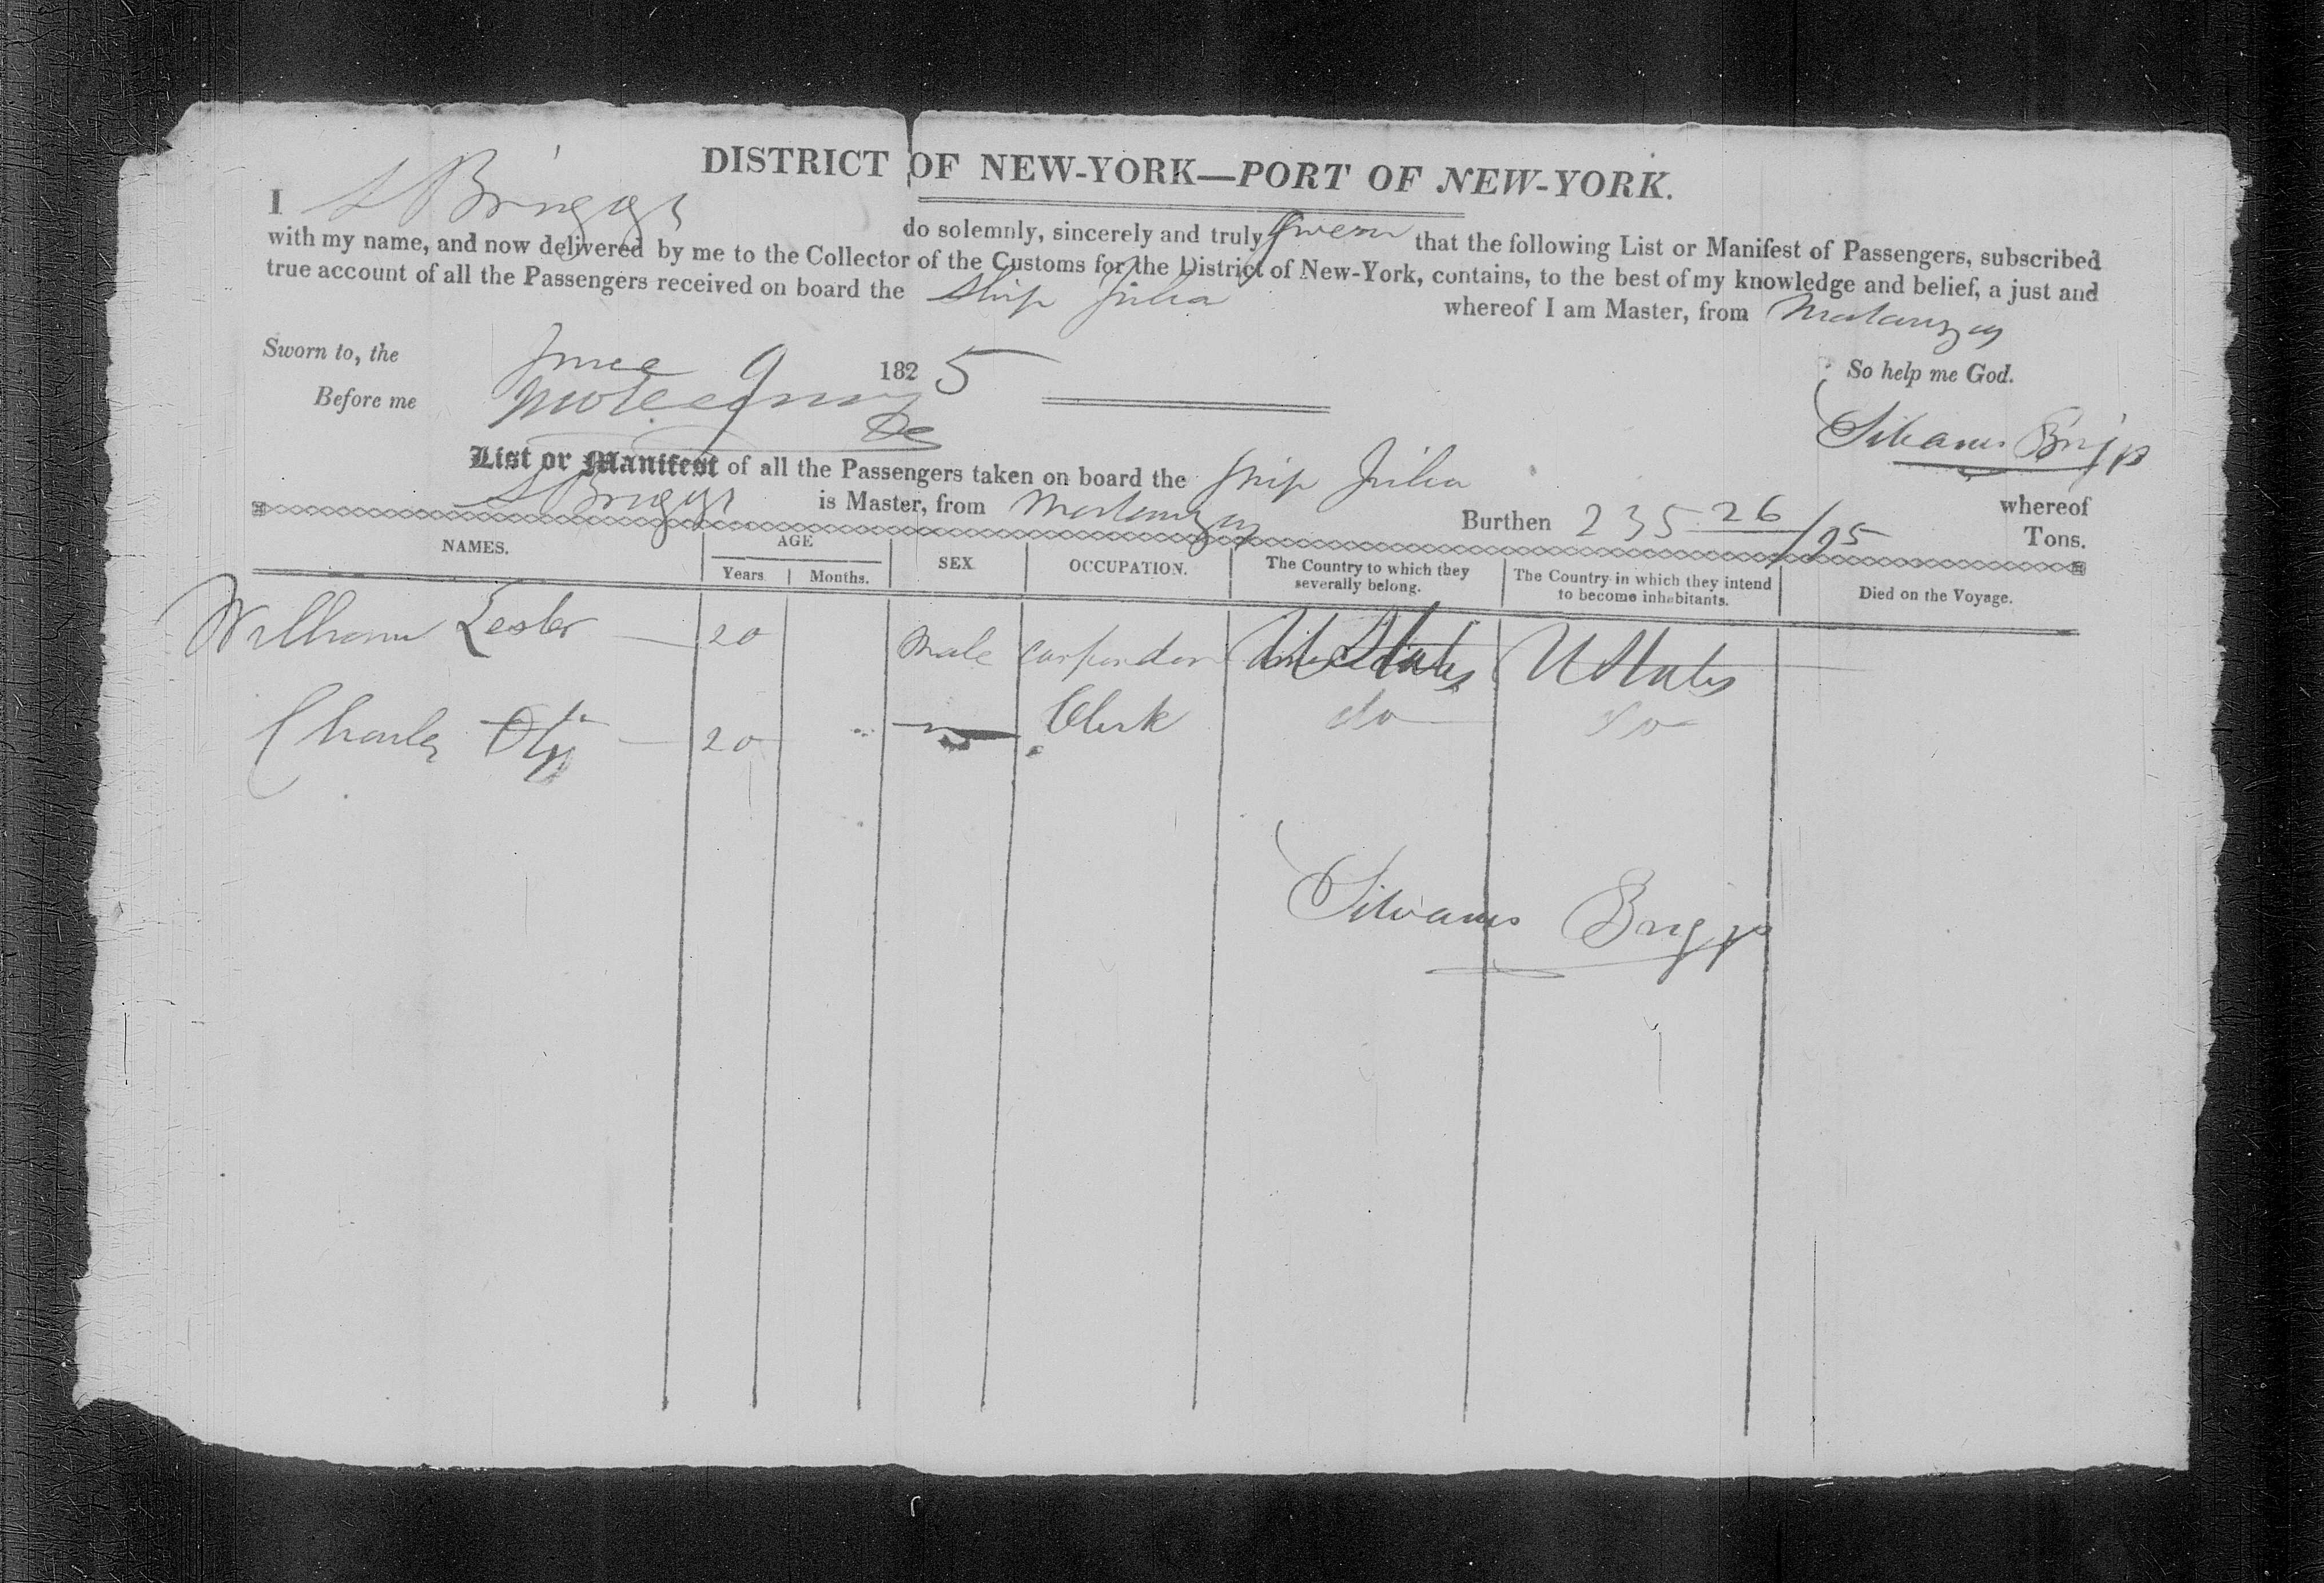 DISTRICT OF NEW-YORK—PORT OF NEW-YORK.
I S Briggs do solemnly, sincerely and truly swear that the following List or Manifest of Passengers, subscribed
with my name, and now delivered by me to the Collector of the Customs for the District of New-York, contains, to the best of my knowledge and belief, a just and
true account of all the Passengers received on board the Ship Julia whereof I am Master, from Matanzas
Sworn to, the June 9 1825 So help me God.
Before me
Silvanus Briggs
List or Manifest of all the Passengers taken on board the Ship Julia whereof
S Briggs is Master, from Matanzas Burthen 235 26/95 Tons.
NAMES. AGE SEX OCCUPATION. The Country to which they severally belong. The Country in which they intend to become inhabitants. Died on the Voyage.
Years Months.
William Lester 20 Male Carpenter U States U States
Charles 20 Clerk do do
Silvanus Briggs